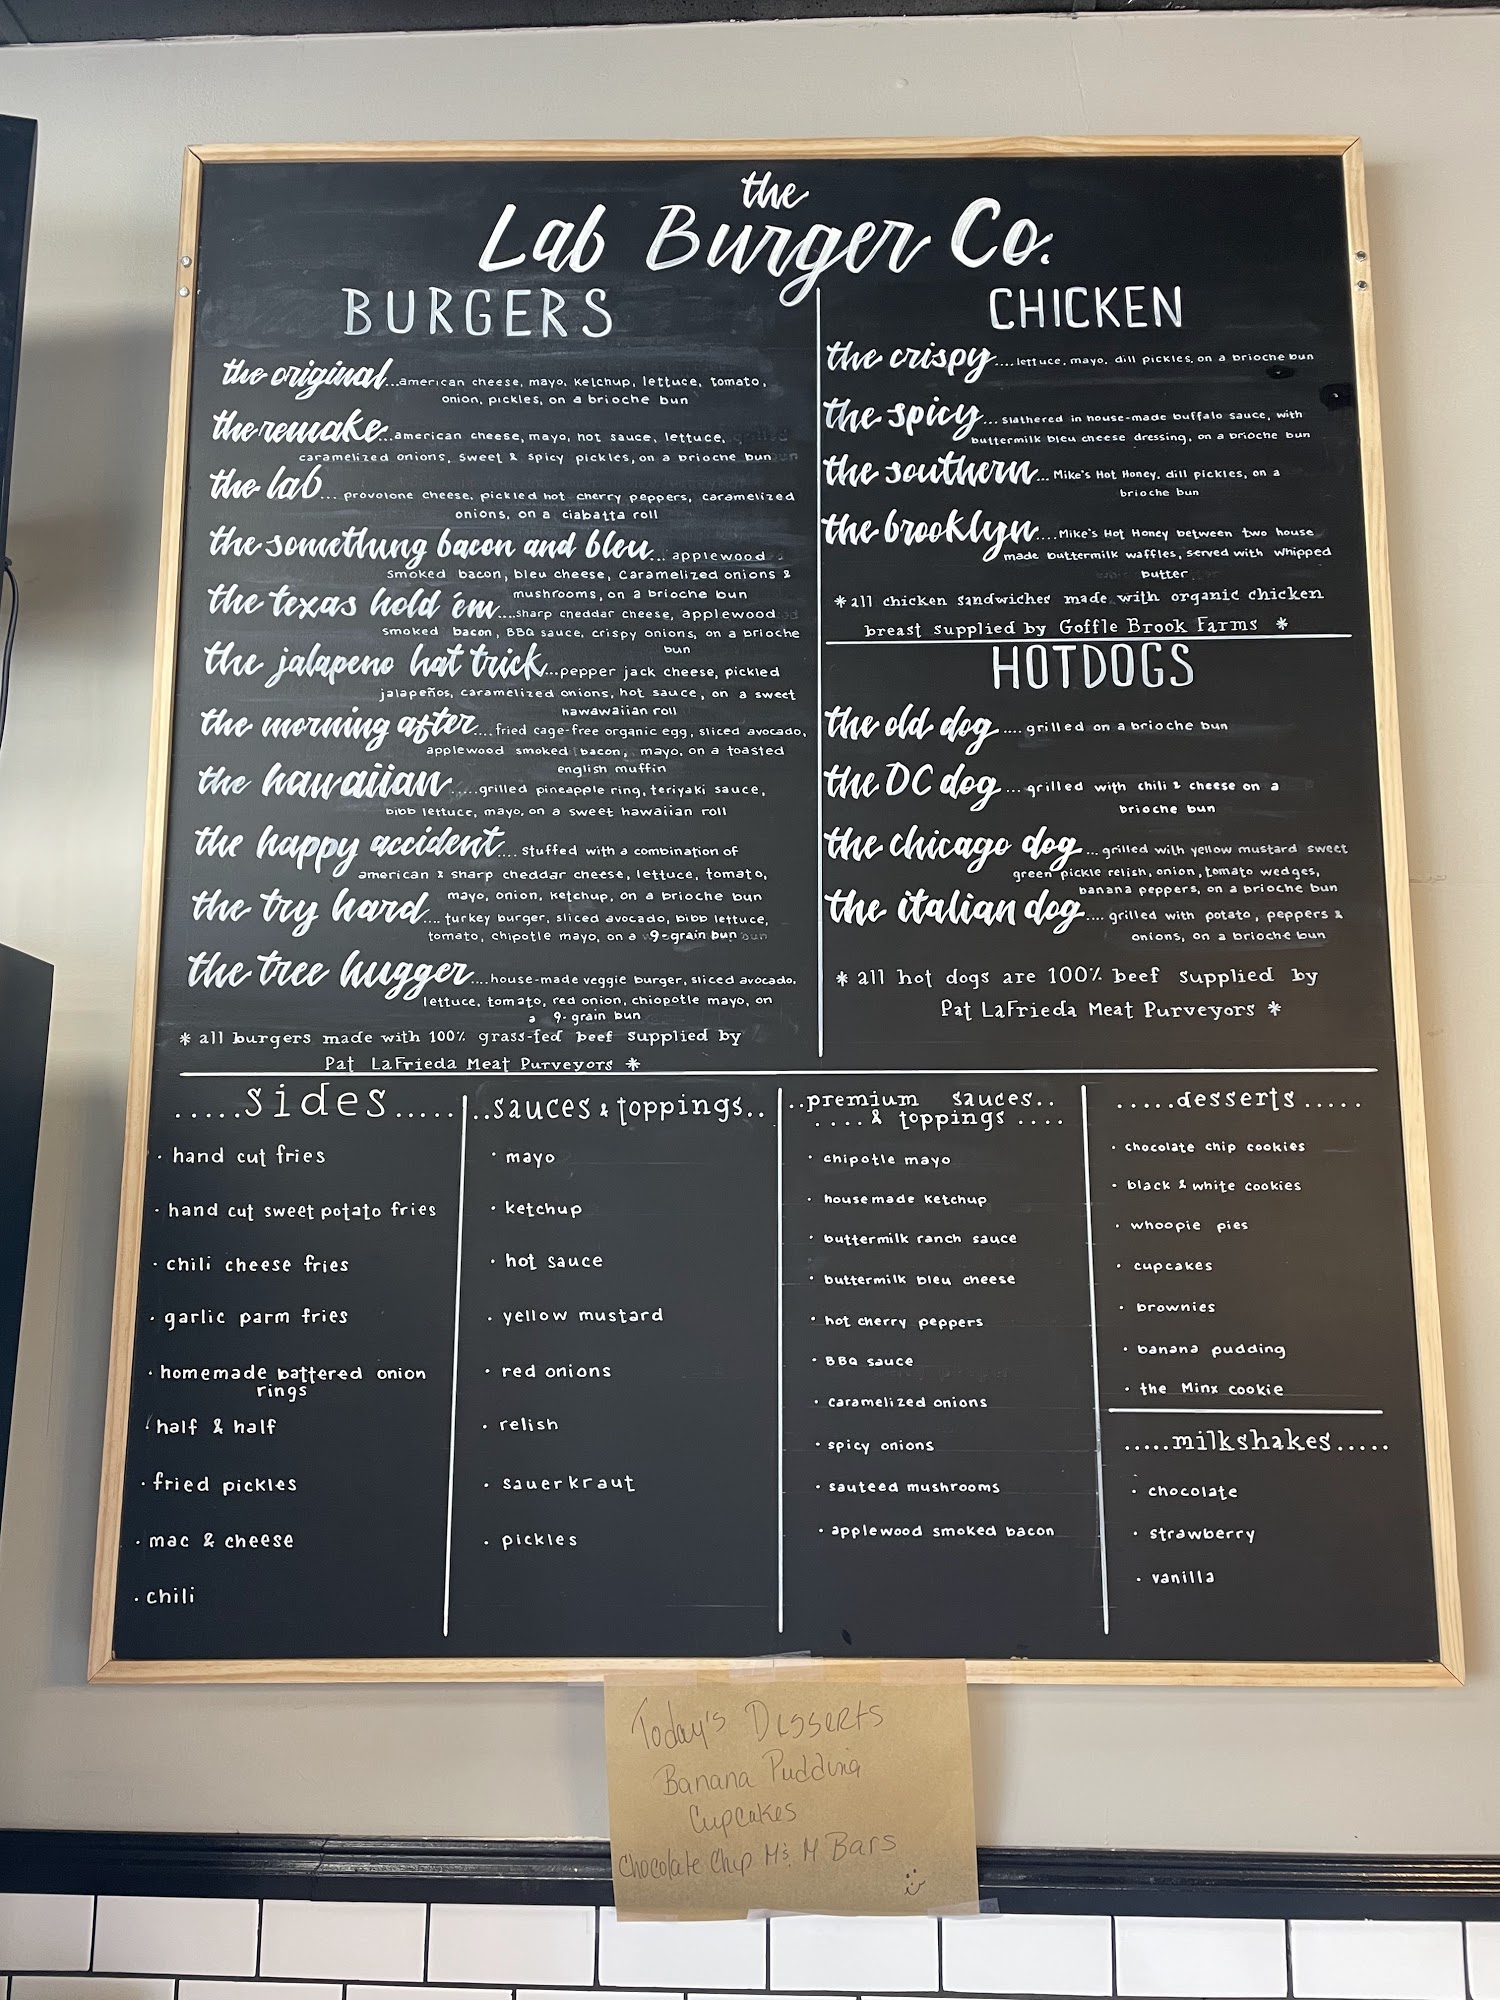 the
Lab Burger Co.
BURGERS
the original...american cheese, mayo, ketchup, lettuce, tomato,
onion, pickles, on a brioche bun
the remake...american cheese, mayo, hot sauce, lettuce,
caramelized onions, sweet & spicy pickles, on a brioche bun
the lab... provolone cheese, pickled hot cherry peppers, caramelized
onions, on a ciabatta roll
the something bacon and bleu... applewood
smoked bacon, bleu cheese, caramelized onions &
mushrooms, on a brioche bun
the texas hold 'em....sharp cheddar cheese, applewood
smoked bacon, BBQ sauce, crispy onions, on a brioche
bun
the jalapeno hat trick...pepper jack cheese, pickled
jalapeños, caramelized onions, hot sauce, on a sweet
hawawaiian roll
the morning after....fried cage-free organic egg, sliced avocado,
applewood smoked bacon, mayo, on a toasted
english muffin
the hawaiian.....grilled pineapple ring, teriyaki sauce,
bibb lettuce, mayo, on a sweet hawaiian roll
the happy accident.... stuffed with a combination of
american & sharp cheddar cheese, lettuce, tomato,
mayo, onion, ketchup, on a brioche bun
the try hard.... turkey burger, sliced avocado, bibb lettuce,
tomato, chipotle mayo, on a 9-grain bun
the tree hugger....house-made veggie burger, sliced avocado,
lettuce, tomato, red onion, chiopotle mayo, on
a 9-grain bun
* all burgers made with 100% grass-fed beef supplied by
Pat LaFrieda Meat Purveyors *
CHICKEN
the crispy....lettuce, mayo, dill pickles, on a brioche bun
the spicy... slathered in house-made buffalo sauce, with
buttermilk bleu cheese dressing, on a brioche bun
the southern... Mike's Hot Honey, dill pickles, on a
brioche bun
the brooklyn....Mike's Hot Honey between two house
made buttermilk waffles, served with whipped
butter
*all chicken sandwiches made with organic chicken
breast supplied by Goffle Brook Farms *
HOTDOGS
the old dog .... grilled on a brioche bun
the DC dog ... grilled with chili & cheese on a
brioche bun
the chicago dog ... grilled with yellow mustard sweet
green pickle relish, onion, tomato wedges,
banana peppers, on a brioche bun
the italian dog .... grilled with potato, peppers &
onions, on a brioche bun
* all hot dogs are 100% beef supplied by
Pat LaFrieda Meat Purveyors *
.....sides.....
· hand cut fries
· hand cut sweet potato fries
· chili cheese fries
· garlic parm fries
· homemade battered onion
rings
· half & half
· fried pickles
· mac & cheese
· chili
..sauces & toppings..
· mayo
· ketchup
· hot sauce
· yellow mustard
· red onions
· relish
· sauerkraut
· pickles
..premium sauces..
....& toppings ....
· chipotle mayo
· housemade ketchup
· buttermilk ranch sauce
· buttermilk bleu cheese
· hot cherry peppers
· BBQ sauce
· caramelized onions
· spicy onions
· sauteed mushrooms
· applewood smoked bacon
.....desserts.....
· chocolate chip cookies
· black & white cookies
· whoopie pies
· cupcakes
· brownies
· banana pudding
· the Minx cookie
.....milkshakes.....
· chocolate
· strawberry
· vanilla
Today's Desserts
Banana Pudding
Cupcakes
Chocolate Chip M&M Bars